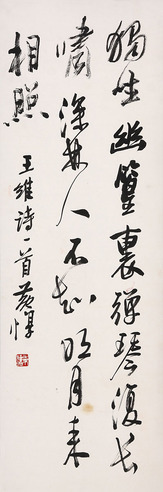 獨坐幽篁裏彈琴復長
嘯深林人不知明月来
相照
王维诗一首黄惇